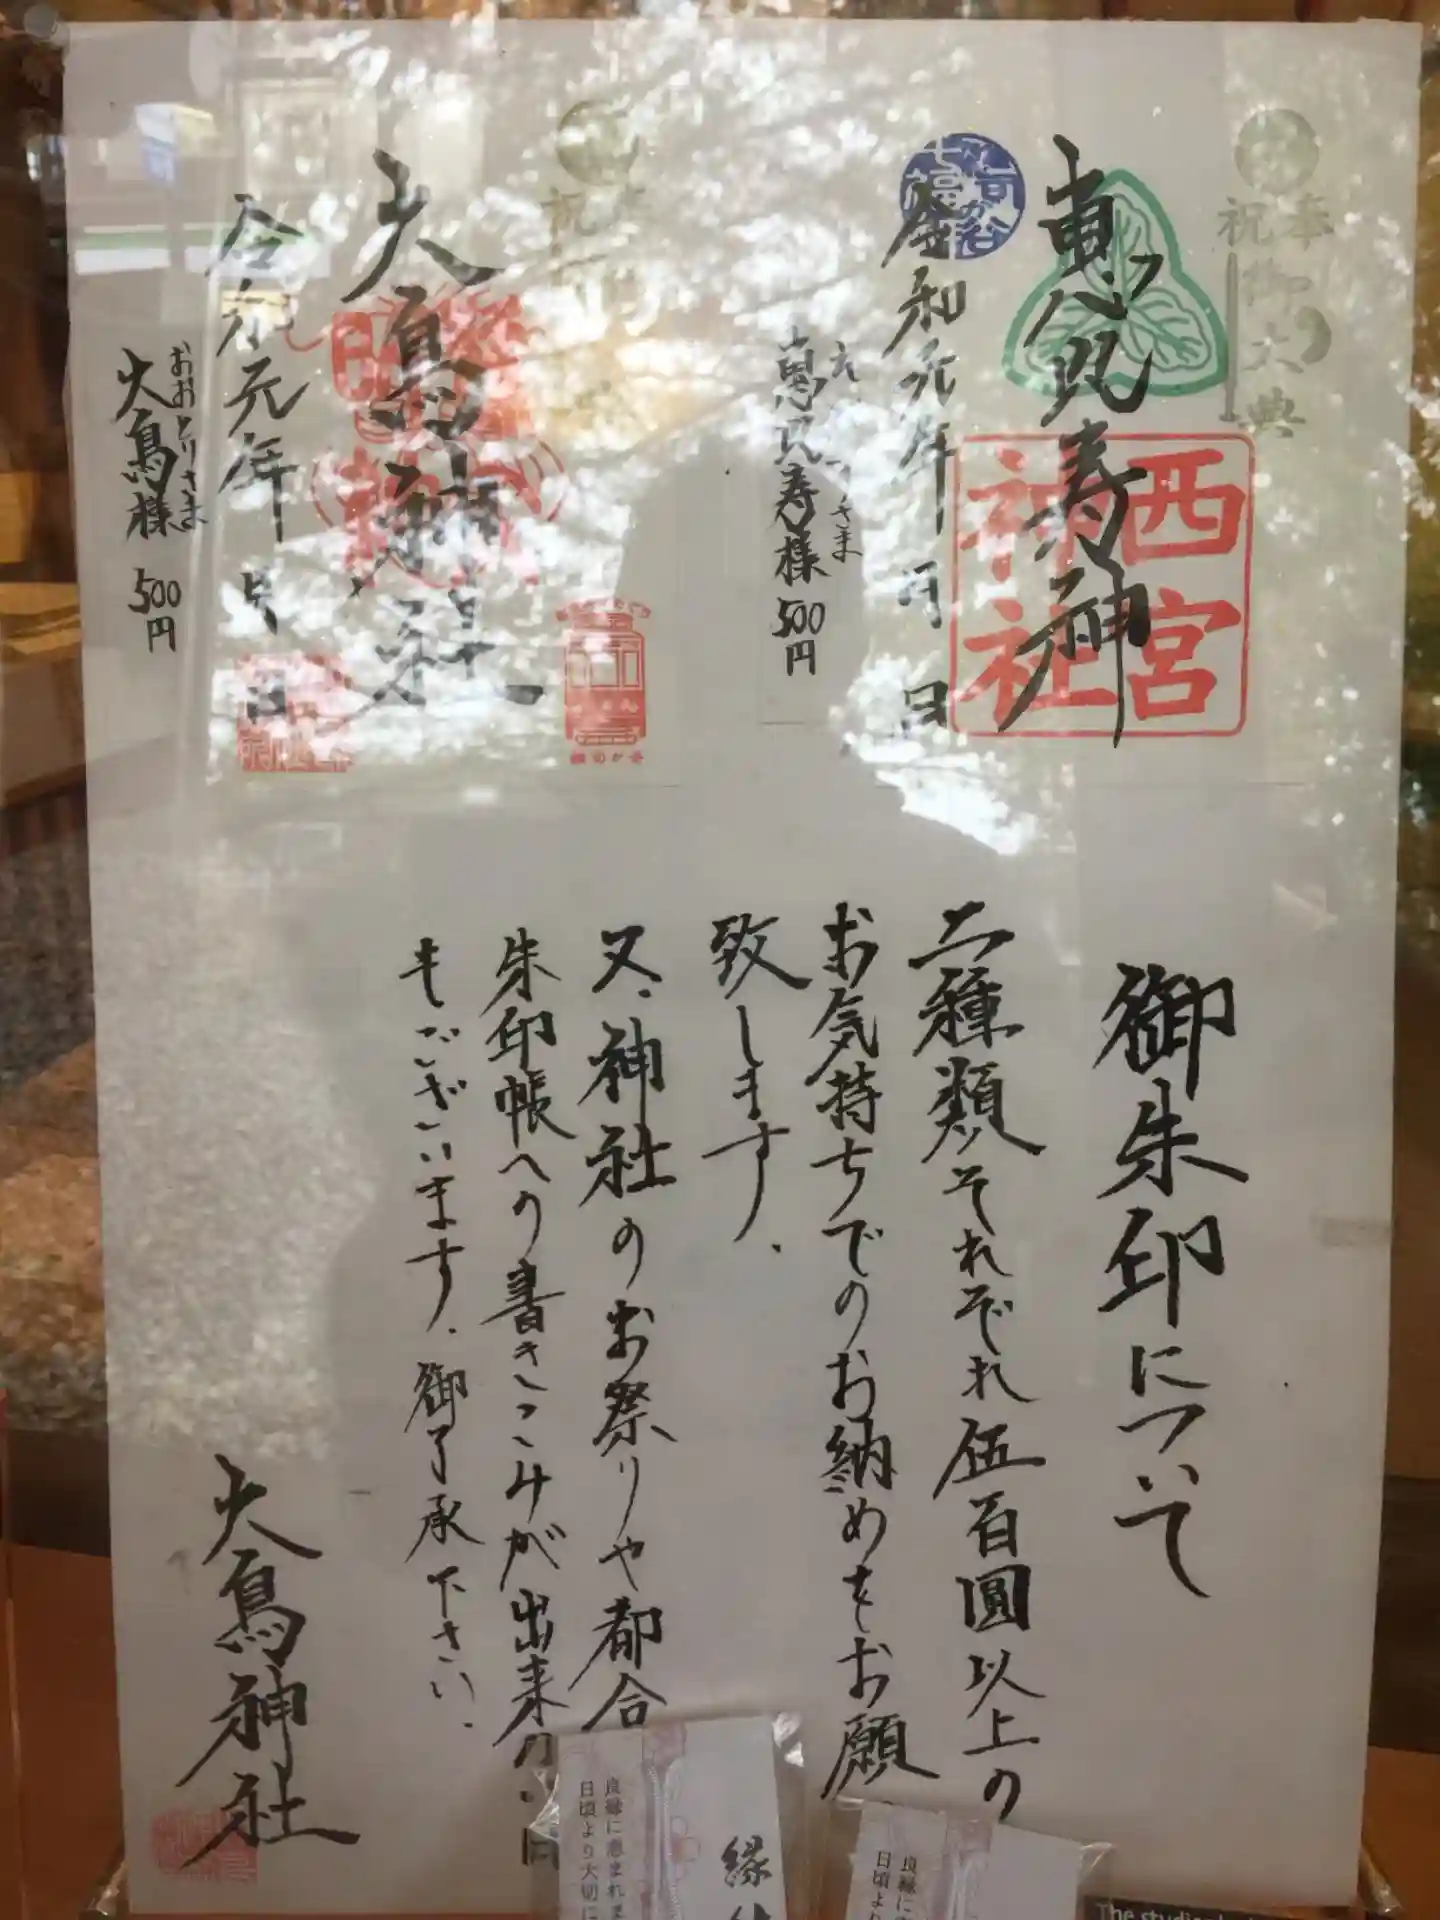 奉祝
御大典
恵比寿神
西宮
神社
令和元年 月 日
えびすさま
恵比寿様 500円
大鳥神社
令和元年 月 日
おおとりさま
大鳥様 500円
御朱印について
二種類それぞれ伍百圓以上の
お気持ちでのお納めをお願
致します、
又、神社のお祭りや都合
朱印帳への書きこみが出来ない
もございます、御了承下さい、
大鳥神社
良縁に恵まれま
日頃より大切に
縁
良縁に
日頃より